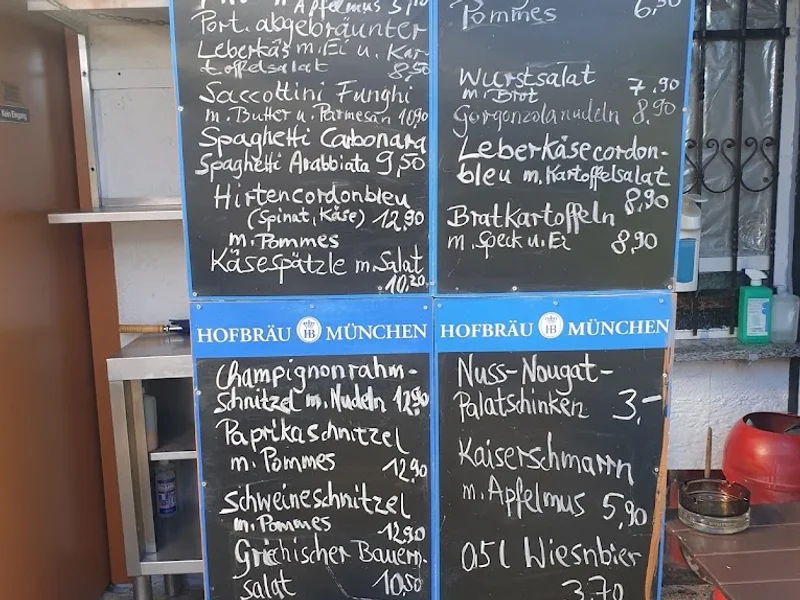 Apfelmus 5,10
Port. abgebräunter
Leberkäs m. Ei u. Kar-
toffelsalat 8,50
Saccottini Funghi
m. Butter u. Parmesan 10,90
Spaghetti Carbonara
Spaghetti Arabbiata 9,50
Hirtencordonbleu
(Spinat, Käse) 12,90
m. Pommes
Käsespätzle m. Salat
10,20
Pommes 6,50
Wurstsalat
m. Brot 7,90
Gorgonzolanudeln 8,90
Leberkäsecordon-
bleu m. Kartoffelsalat
8,90
Bratkartoffeln
m. Speck u. Ei 8,90
HOFBRÄU HB MÜNCHEN
Champignonrahm-
Schnitzel m. Nudeln 12,90
Paprikaschnitzel
m. Pommes 12,90
Schweineschnitzel
m. Pommes
12,90
Grichischer Bauern-
salat 10,50
HOFBRÄU HB MÜNCHEN
Nuss-Nougat-
Palatschinken 3,-
Kaiserschmarrn
m. Apfelmus 5,90
0,5 l Wiesnbier
3,70
Kein Eingang